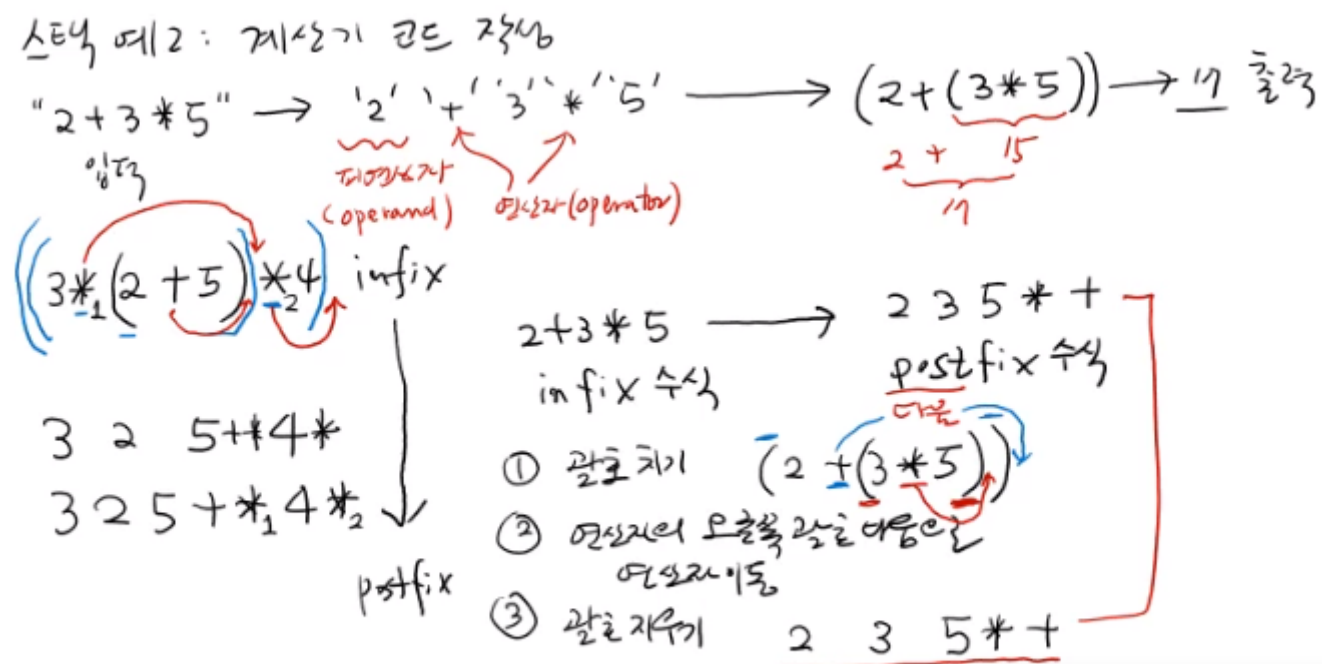 스택 예2: 계산기 코드 작성
"2+3*5" → '2' '+' '3' '*' '5' → (2+(3*5)) → 17 출력
입력
피연산자
(operand)
연산자(operator)
2 + 15
17
((3*₁(2+5))*₂4) infix
3 2 5+*4*
3 2 5+*₁4*₂
postfix
2+3*5 → 2 3 5 * +
infix 수식
postfix 수식
다음
① 괄호 치기 (2+(3*5))
② 연산자의 오른쪽 괄호 다음으로
연산자 이동
③ 괄호 지우기 2 3 5 * +